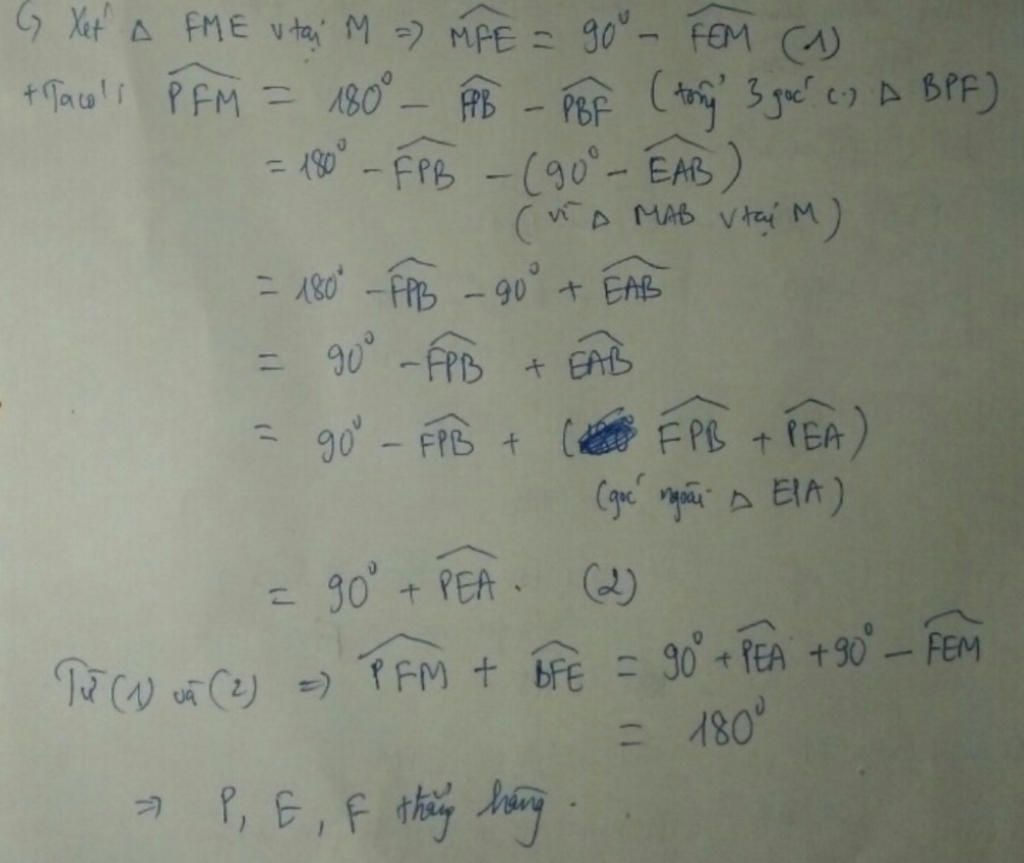 c) Xét Δ FME v tại M => \widehat{MFE} = 90° - \widehat{FEM} (1)
+ Ta có: \widehat{PFM} = 180° - \widehat{FPB} - \widehat{PBF} (tổng 3 góc c.) Δ BPF)
= 180° - \widehat{FPB} - (90° - \widehat{EAB})
(vì Δ MAB v tại M)
= 180° - \widehat{FPB} - 90° + \widehat{EAB}
= 90° - \widehat{FPB} + \widehat{EAB}
= 90° - \widehat{FPB} + (\widehat{FPB} + \widehat{PEA})
(góc ngoài Δ EPA)
= 90° + \widehat{PEA}. (2)
Từ (1) và (2) => \widehat{PFM} + \widehat{BFE} = 90° + \widehat{PEA} + 90° - \widehat{FEM}
= 180°
=> P, E, F thẳng hàng.